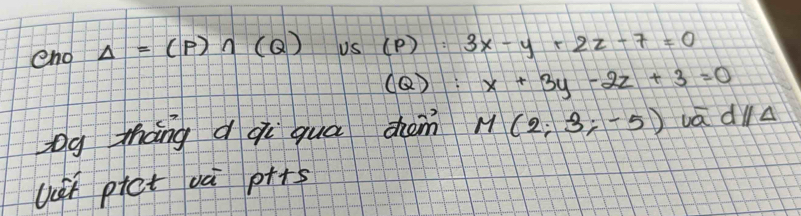 Cho Δ = (P) ∩ (Q) vs (P) : 3x - y + 2z - 7 = 0
(Q) : x + 3y - 2z + 3 = 0
Đg thẳng d đi qua điểm M (2; 3; -5) và d // Δ
Viết ptct và ptts